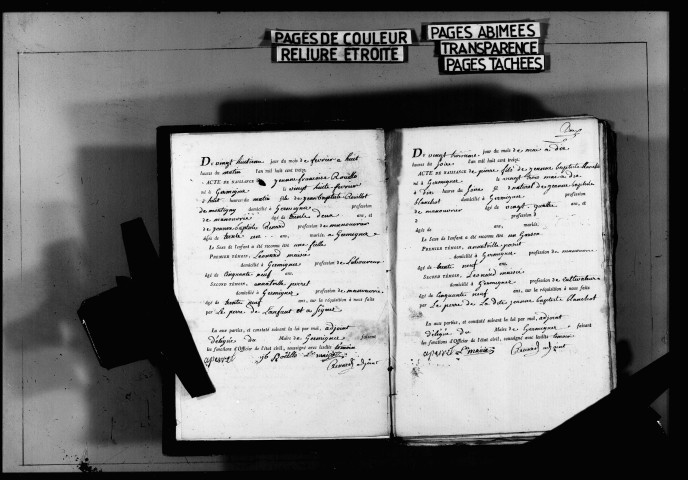 PAGES DE COULEUR
RELIURE ETROITE
PAGES ABIMEES
TRANSPARENCE
PAGES TACHEES
Du vingt huitieme jour du mois de fevrier a huit
heures du matin l'an mil huit cent treize.
ACTE DE NAISSANCE de jeanne francoise Rouillo
né à Germigney le vingt huite fevrier
à huit heures du matin fils de jean baptiste Rouillot
de montigny domicilié à Germigney profession
de manouvrie âgé de trente deux ans, et
de jeanne baptiste Renard profession de manouvrier
âgée de trente un ans, mariés a Germigney
Le Sexe de l'enfant a été reconnu être une fille
PREMIER TÉMOIN, Leonard maire
domicilié à Germigney profession de Laboureur
âgé de cinquante neuf ans.
SECOND TÉMOIN, anatoille perret
domicilié à Germigney profession de manouvrie
âgé de trente neuf ans, sur la réquisition à nous faite
par Le pere de Lanfant et a signe
Lu aux parties, et constaté suivant la loi par moi, adjoint
délégué du Maire de Germigney faisant
les fonctions d'Officier de l'état civil, soussigné avec lesdits temoin
aperret jb Rouillo Ld maire
Renard adjoint
Du vingt troisieme jour du mois de mai a dix
heures du soire l'an mil huit cent treize.
ACTE DE NAISSANCE de pierre fils de jeanne baptiste blanchot
né à Germigney le vingt trois mai a dix
à dix heures du soire fils naturel de jeanne baptiste
blanchot domicilié à Germigney profession
de manouvrier âgé de vingt quatre ans, et
Le Sexe de l'enfant a été reconnu être un Garson
PREMIER TÉMOIN, anatoille perret
domicilié à Germigney profession de manouvrie
âgé de trente neuf ans.
SECOND TÉMOIN, Leonard maire
domicilié à Germigney profession de cultivateur
âgé de cinquante neuf ans, sur la réquisition à nous faite
par Le pere de La dite jeanne baptiste blanchot
Lu aux parties, et constaté suivant la loi par moi, adjoint
délégué du Maire de Germigney faisant
les fonctions d'Officier de l'état civil, soussigné avec lesdits temoin
aperret Ld maire
Renard adjoint